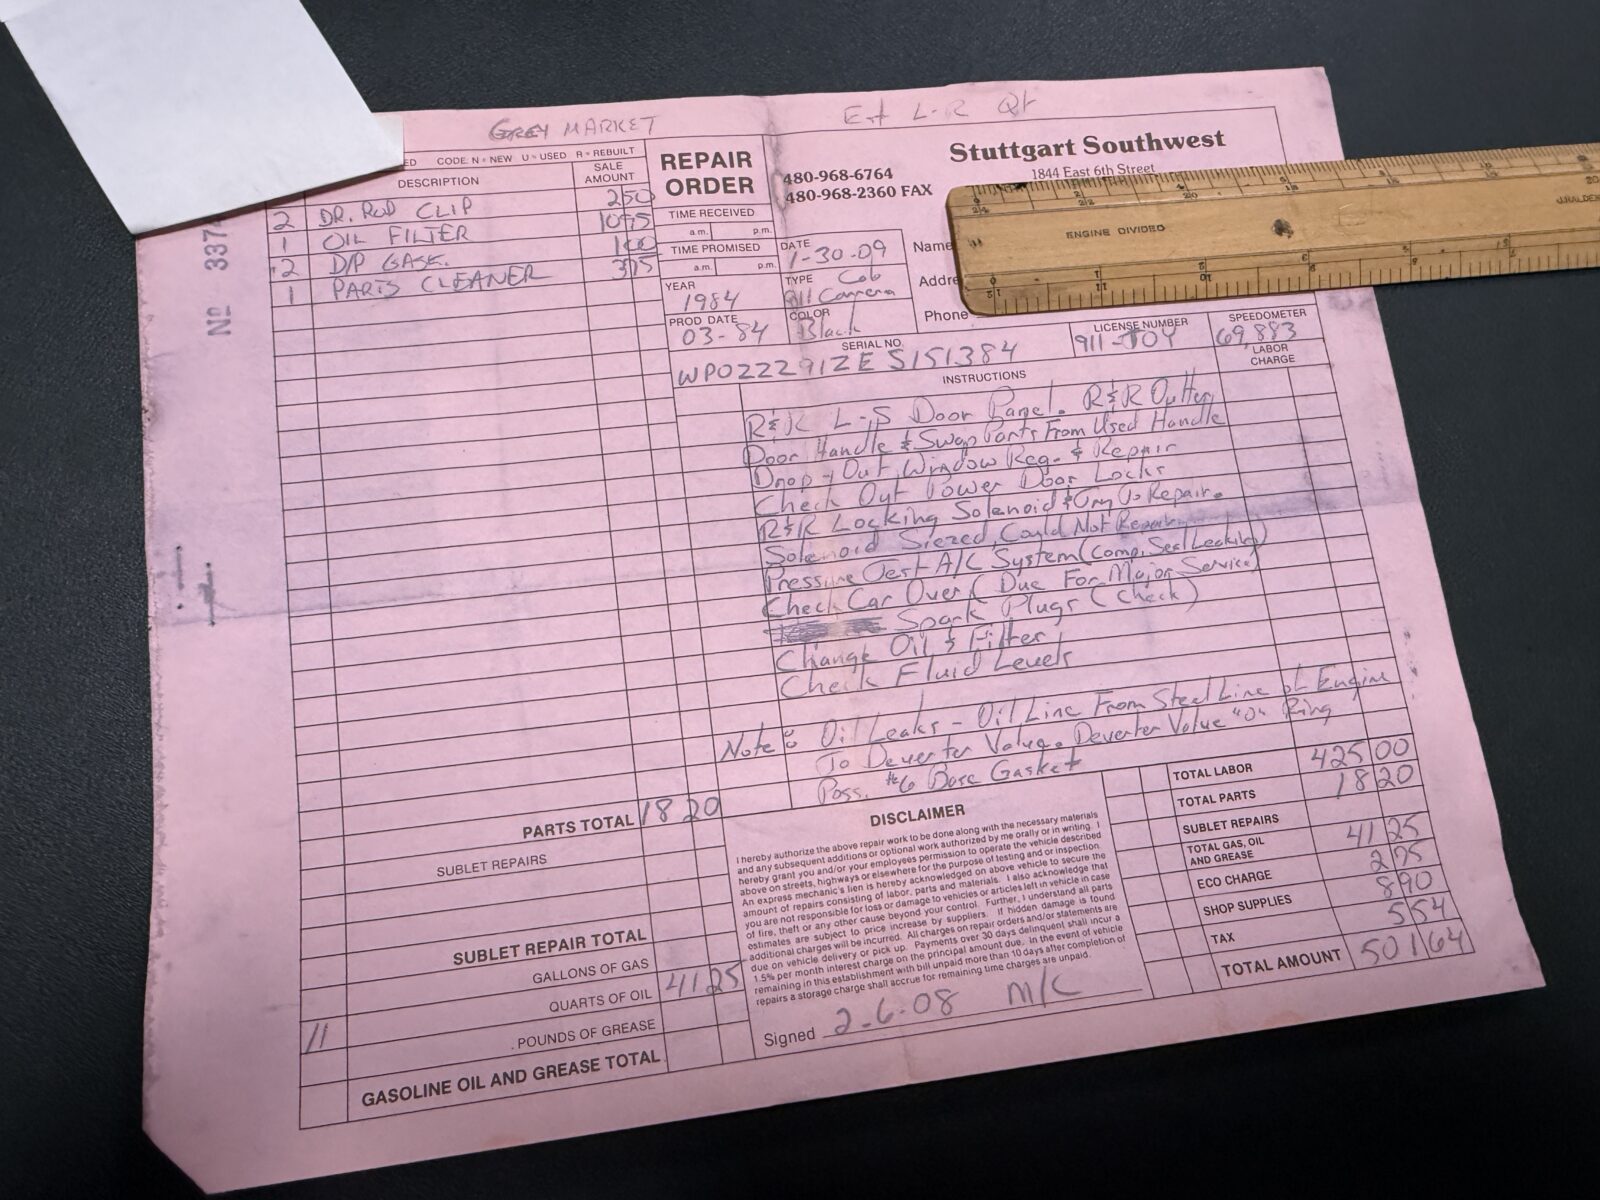 GREY MARKET
Ext L-R Qt
ED CODE: N = NEW U = USED R = REBUILT
DESCRIPTION SALE AMOUNT
2 DR. ROD CLIP 2 50
1 OIL FILTER 10 95
2 D/P GASK. 1 00
1 PARTS CLEANER 3 75
Nº 3374
REPAIR ORDER
TIME RECEIVED
a.m. p.m.
TIME PROMISED
a.m. p.m.
480-968-6764
480-968-2360 FAX
Stuttgart Southwest
1844 East 6th Street
DATE 1-30-09
TYPE Cab
911 Carrera
YEAR 1984
PROD DATE 03-84
COLOR Black
Name
Addre
Phone
SERIAL NO. WPOZZZ91ZES151384
LICENSE NUMBER 911-TOY
SPEEDOMETER 69,883
INSTRUCTIONS
LABOR CHARGE
R&R L-S Door Panel. R&R Outter
Door Handle & Swap Parts From Used Handle
Drop-Out Window Reg. & Repair
Check Out Power Door Locks
R&R Locking Solenoid & Try To Repair.
Solenoid Siezed, Could Not Repair
Pressure Test A/C System (Comp. Seal Leaking)
Check Car Over (Due For Major Service)
Spark Plugs (Check)
Change Oil & Filter
Check Fluid Levels
Note: Oil Leaks - Oil Line From Steel Line at Engine
To Deverter Valve. Deverter Valve "O" Ring
Poss. #6 Base Gasket
PARTS TOTAL 18 20
SUBLET REPAIRS
SUBLET REPAIR TOTAL
GALLONS OF GAS
11 QUARTS OF OIL 41 25
POUNDS OF GREASE
GASOLINE OIL AND GREASE TOTAL
DISCLAIMER
I hereby authorize the above repair work to be done along with the necessary materials
and any subsequent additions or optional work authorized by me orally or in writing. I
hereby grant you and/or your employees permission to operate the vehicle described
above on streets, highways or elsewhere for the purpose of testing and/or inspection.
An express mechanic's lien is hereby acknowledged on above vehicle to secure the
amount of repairs consisting of labor, parts and materials. I also acknowledge that
you are not responsible for loss or damage to vehicles or articles left in vehicle in case
of fire, theft or any other cause beyond your control. Further, I understand all parts
estimates are subject to price increase by suppliers. If hidden damage is found
additional charges will be incurred. All charges on repair orders and/or statements are
due on vehicle delivery or pick up. Payments over 30 days delinquent shall incur a
1.5% per month interest charge on the principal amount due. In the event of vehicle
remaining in this establishment with bill unpaid more than 10 days after completion of
repairs a storage charge shall accrue for remaining time charges are unpaid.
Signed 2-6-08 M/C
TOTAL LABOR 425 00
TOTAL PARTS 18 20
SUBLET REPAIRS
TOTAL GAS, OIL AND GREASE 41 25
ECO CHARGE 2 75
SHOP SUPPLIES 8 90
TAX 5 54
TOTAL AMOUNT 501 64
ENGINE DIVIDED